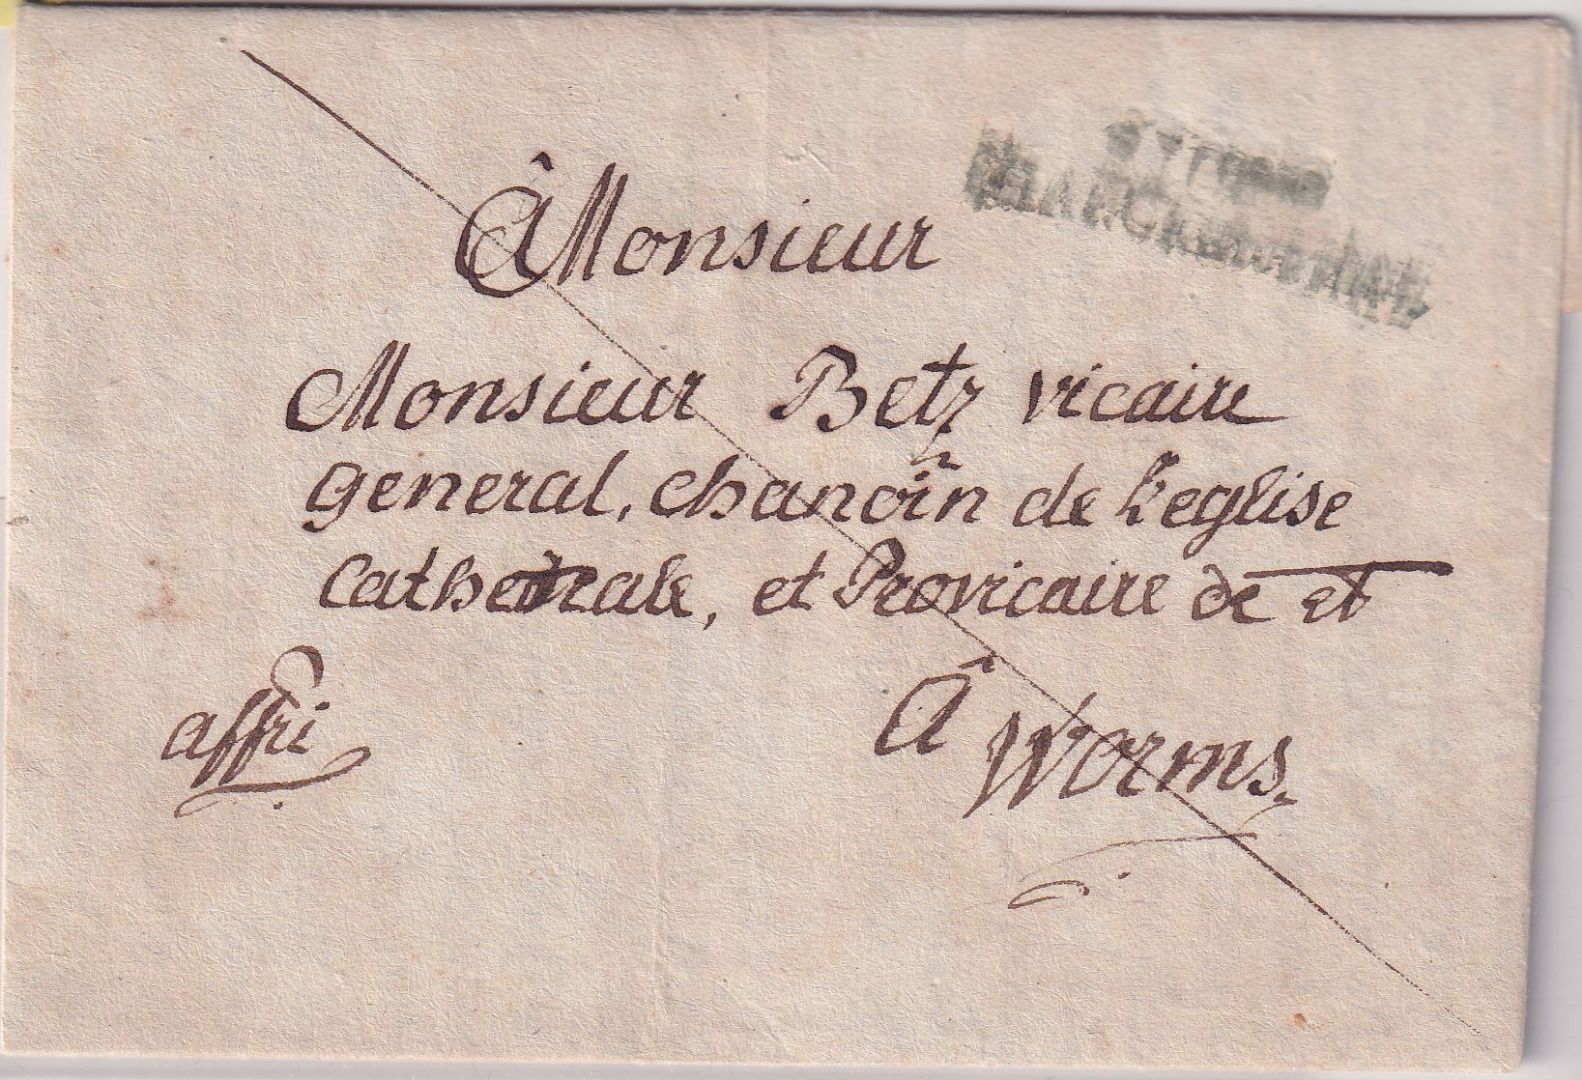 â Monsieur
Monsieur Betz vicaire
general, chanoin de l'eglise
Cathedrale, et Provicaire de et
affri
â Worms.